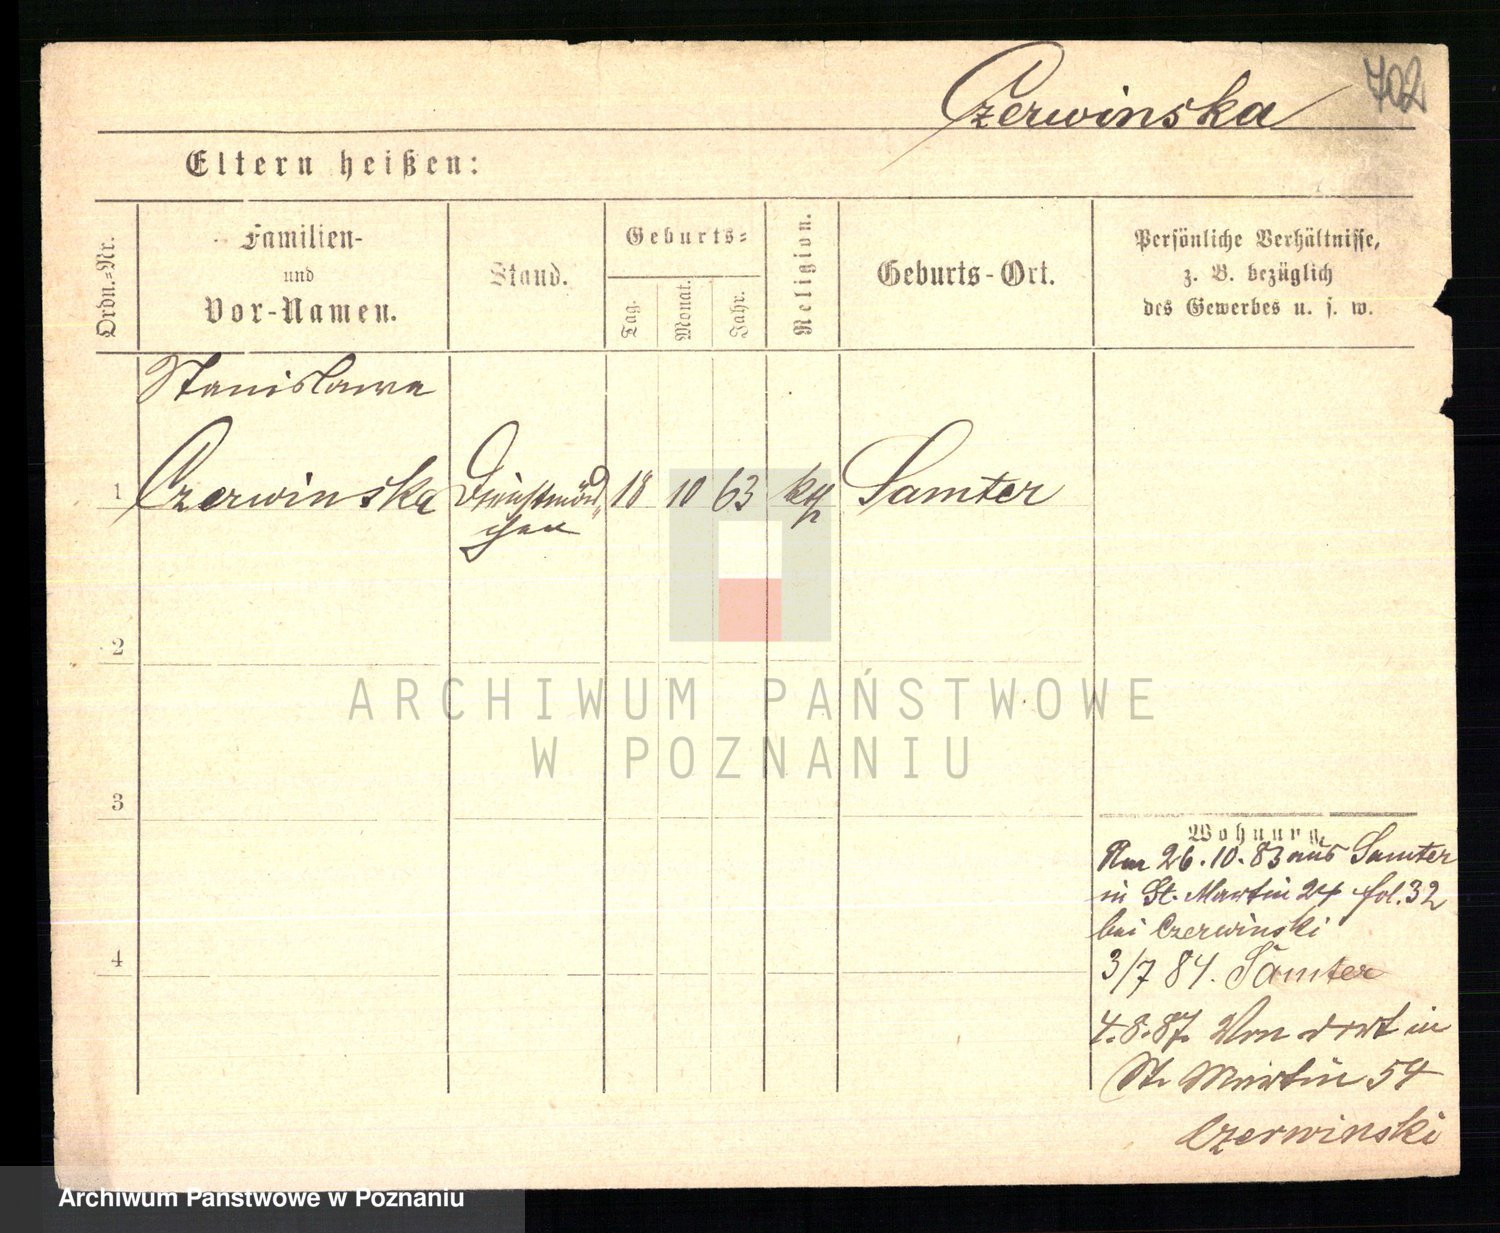 702
Czerwinska
Eltern heißen:
Ordn.-Nr.
Familien-
und
Vor-Namen.
Stand.
Geburts-
Tag.
Monat.
Jahr.
Religion.
Geburts-Ort.
Persönliche Verhältnisse,
z. B. bezüglich
des Gewerbes u. s. w.
Stanislawa
1 Czerwinska Dienstmäd- 18 10 63 kth Samter
chen
2
3
4
ARCHIWUM PAŃSTWOWE
W POZNANIU
Wohnung.
26.10.83 aus Samter
in St. Martin 24 fol. 32
bei Czerwinski
3/7 84. Samter
4.8.87. Von dort in
St. Martin 54
Czerwinski
Archiwum Państwowe w Poznaniu